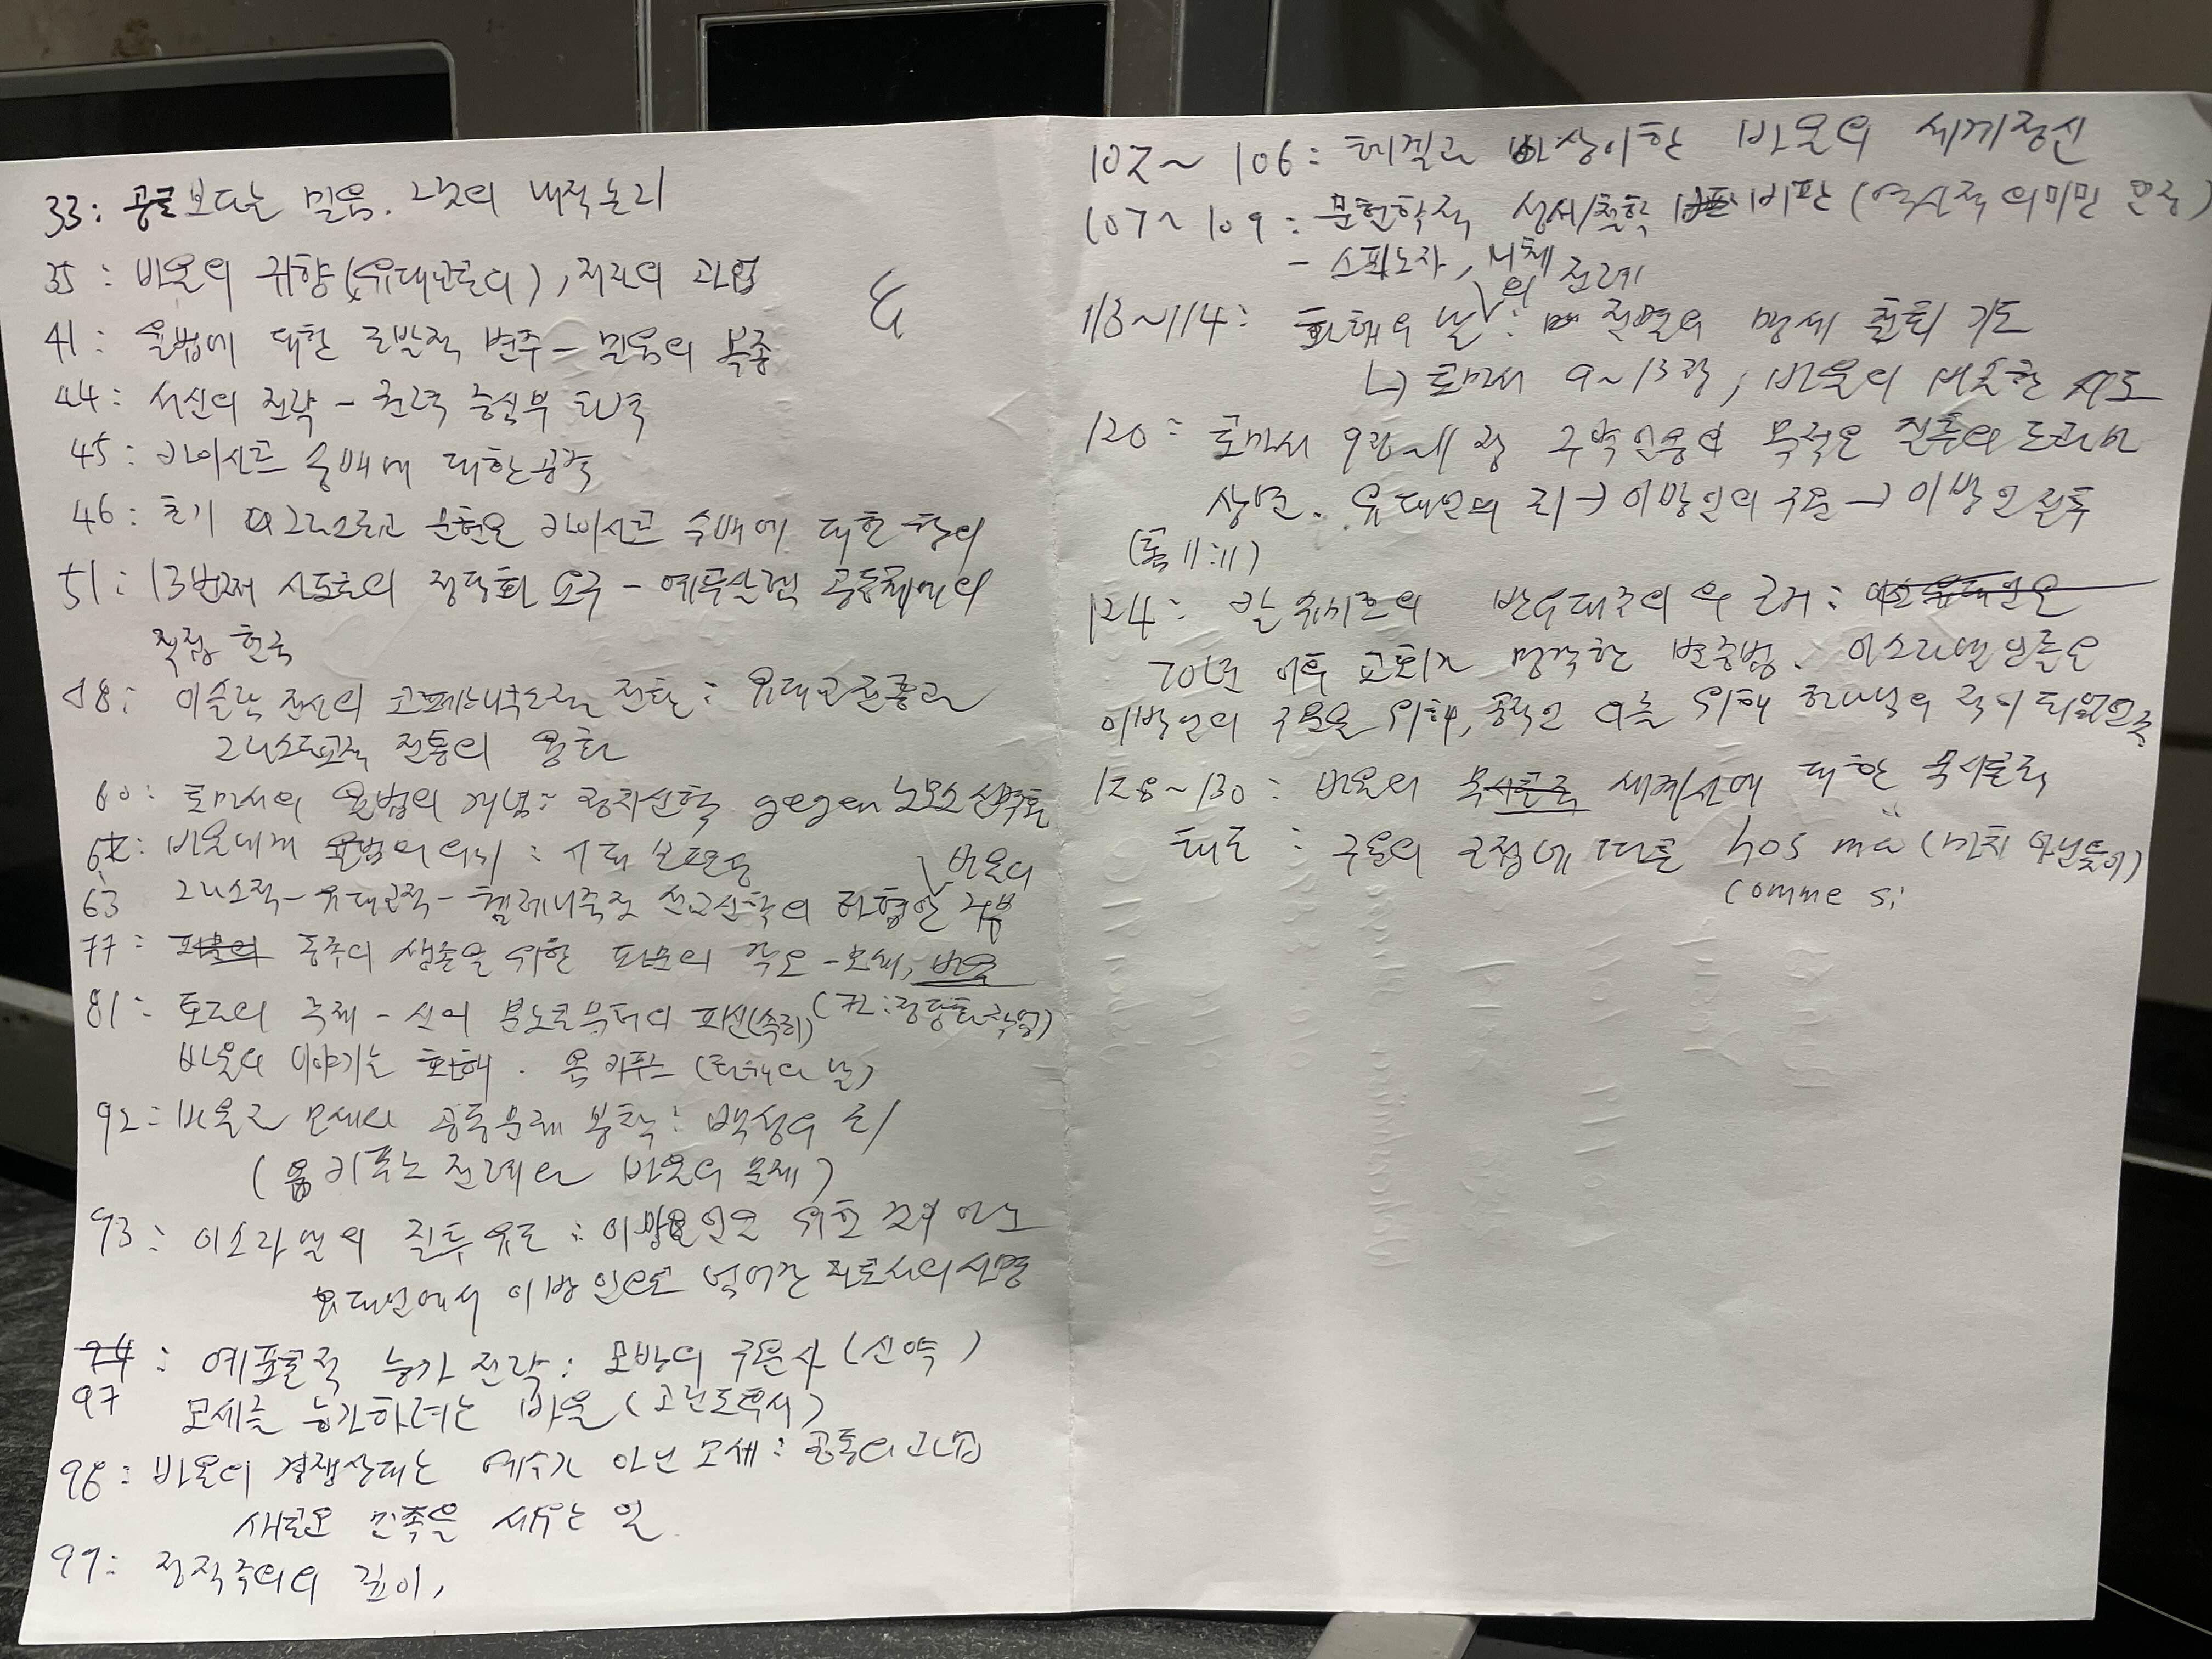 33: 공로보다는 믿음. 그것의 내적논리
35: 바울의 귀향(유대교로의), 저자의 과업
41: 율법에 대한 도발적 변주 - 믿음의 복종
44: 서신의 전략 - 권력 중심부 타격
45: 카이사르 숭배에 대한 공격
46: 초기 그리스도교 문헌은 카이사르 숭배에 대한 항의
51: 13번째 사도로의 정당화 요구 - 예루살렘 공동체에의
직접 헌금
58: 이슬람 전신의 코페르니쿠스적 전환: 유대교 전통과
그리스도교적 전통의 융화
60: 로마서의 율법의 개념: 정치신학 gegen 노모스
62: 바울에게 율법의 의미: 보편성
63 그리스적-유대교적-헬레니즘적 선교신학의 타협안 거부
바울의
77: 동족의 생존을 위한 파문의 각오 - 모세, 바울
81: 토라의 주제 - 신의 분노로부터의 피신(속죄) (72: 정당화 작업)
바울의 이야기는 화해. 욤 키푸르 (화해의 날)
92: 바울과 모세의 공통문제 봉착: 백성의 죄
(욤 키푸르 전례와 바울의 문제)
93: 이스라엘의 질투 유도: 이방인을 위한 것이 아닌
유대인에서 이방인으로 넘어간 사도의 사명
94: 예표론적 능가 전략: 모방의 구원사 (신약)
97 모세를 능가하려는 바울 (고린도후서)
98: 바울의 경쟁상대는 예수가 아닌 모세: 공통의 과업
새로운 민족을 세우는 일
99: 정적주의의 깊이,
102~106: 헤겔과 상이한 바울의 세계정신
107~109: 문헌학적 성서/철학 비판 (역사적 의미만 문중)
- 스피노자, 니체
113~114: 화해의 날의 전례: 전멸의 맹세 철회 기도
↳ 로마서 9~13장, 바울의 비슷한 시도
120: 로마서 9장~11장 구약인용의 목적은 질투의 드라마
상연. 유대인의 죄→이방인의 구원→이방인 질투
(롬 11:11)
124: 반유대주의의 근거:
70년 이후 교회가 망각한 변증법. 이스라엘인들은
이방인의 구원을 위해, 공적인 일을 위해 하나님의 적이 되었으나
128~130: 바울의 세계사에 대한 묵시론적
태도: 구원의 근접에 따른 hos mä (마치 아닌듯이)
comme si